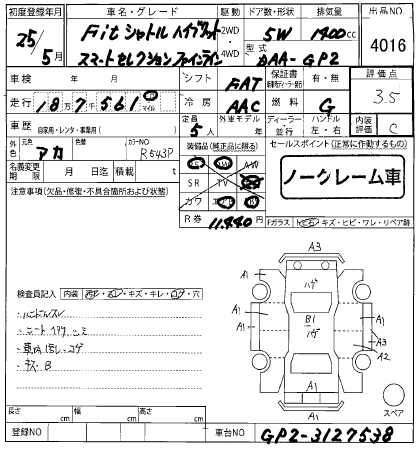 初度登録年月 車名・グレード 駆動 ドア数・形状 排気量 出品NO.
25/5月 Fitシャトル ハイブリット 2WD 5W 1400cc 4016
スマートセレクション ファインライン 4WD 型式 DAA-GP2
車検 年 月 シフト FAT 保証書 有・無 評価点
走行 18万7千561 km マイル 冷房 AAC 燃料 G 3.5
車歴 自家用・レンタ・事業用( ) 定員 5人 外車モデル 年 ディーラー 並行 ハンドル 左・右 内装評価 C
外色 元色 アカ 色替 カラーNO R543P 装備品(純正品に限る) セールスポイント(正常に作動するもの)
名義変更期限 月 日迄 積載 t SR TV ノークレーム車
注意事項(欠品・修復・不具合箇所および状態) カワ
R券 11,440円 Fガラス トビ石・キズ・ヒビ・ワレ・リペア跡
検査員記入 内装 キズ・キレ・コゲ・穴
ハンドルスレ
シート
車内 コゲ
キズ B
A3
ハゲ
A1 A1
A1 A1
B1
ハゲ
A1 A3
A2
A1
A1
スペア
長さ cm 幅 cm 高さ cm
登録NO 車台NO GP2-3127538